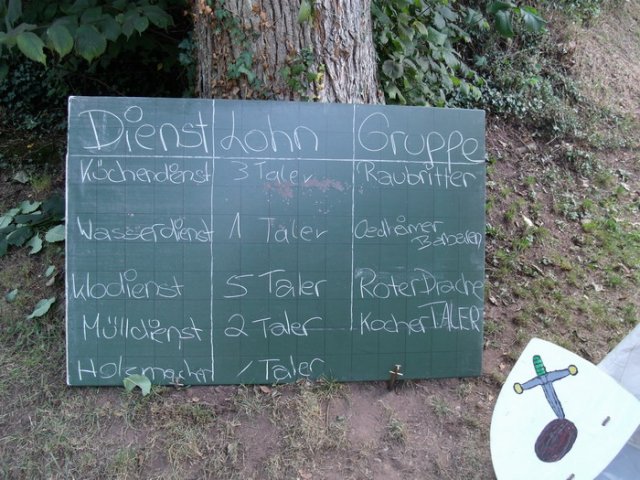 Dienst Lohn Gruppe
Küchendienst 3 Taler Raubritter
Wasserdienst 1 Taler Oedhämer
Barbaren
Klodienst 5 Taler Roter Drache
Mülldienst 2 Taler Kocher TALER
1 Taler